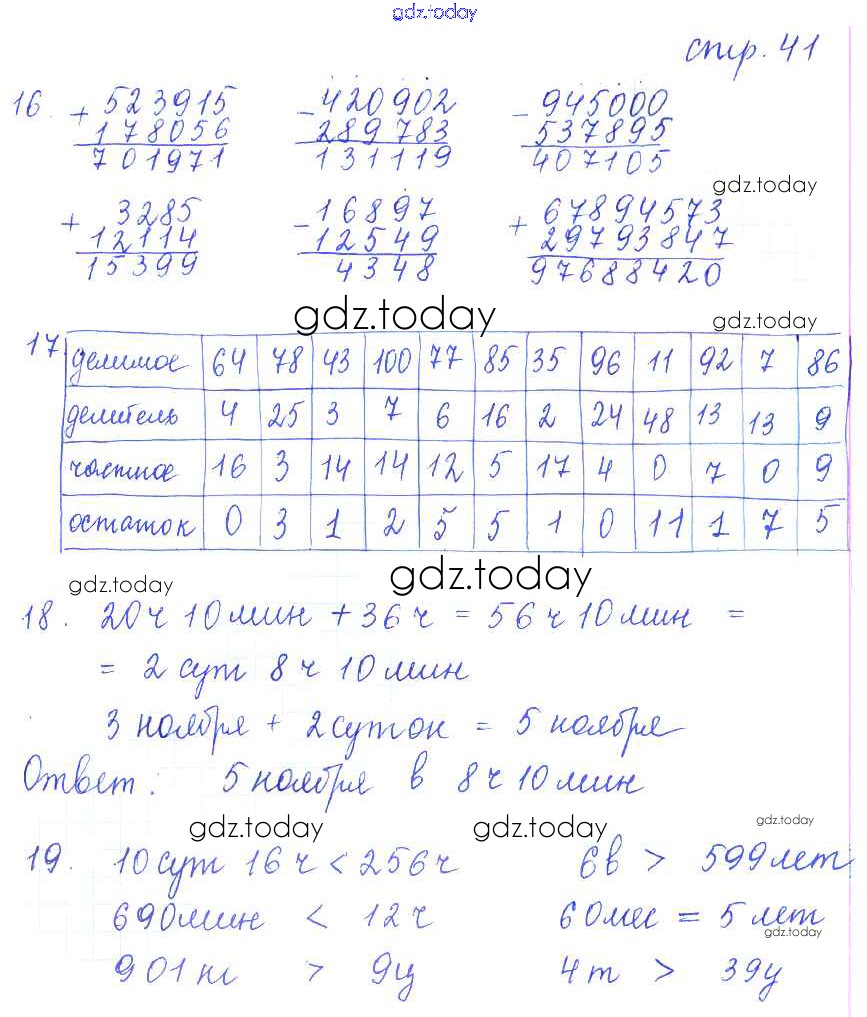 gdz.today
стр. 41
16. + 523915 - 420902 - 945000
178056 289783 537895
701971 131119 407105
gdz.today
+ 3285 - 16897 + 67894573
12114 12549 29793847
15399 4348 97688420
gdz.today gdz.today
17. делимое 64 78 43 100 77 85 35 96 11 92 7 86
делитель 4 25 3 7 6 16 2 24 48 13 13 9
частное 16 3 14 14 12 5 17 4 0 7 0 9
остаток 0 3 1 2 5 5 1 0 11 1 7 5
gdz.today gdz.today
18. 20 ч 10 мин + 36 ч = 56 ч 10 мин =
= 2 сут 8 ч 10 мин
3 ноября + 2 суток = 5 ноября
Ответ: 5 ноября в 8 ч 10 мин
gdz.today gdz.today gdz.today
19. 10 сут 16 ч < 256 ч 6 в > 599 лет
690 мин < 12 ч 60 мес = 5 лет
gdz.today
901 кг > 9 ц 4 т > 39 ц